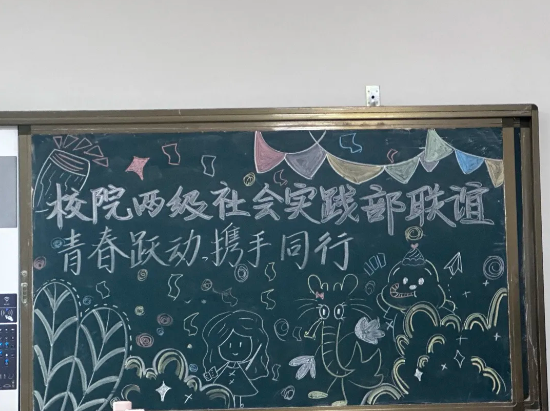 校院两级社会实践部联谊
青春跃动、携手同行